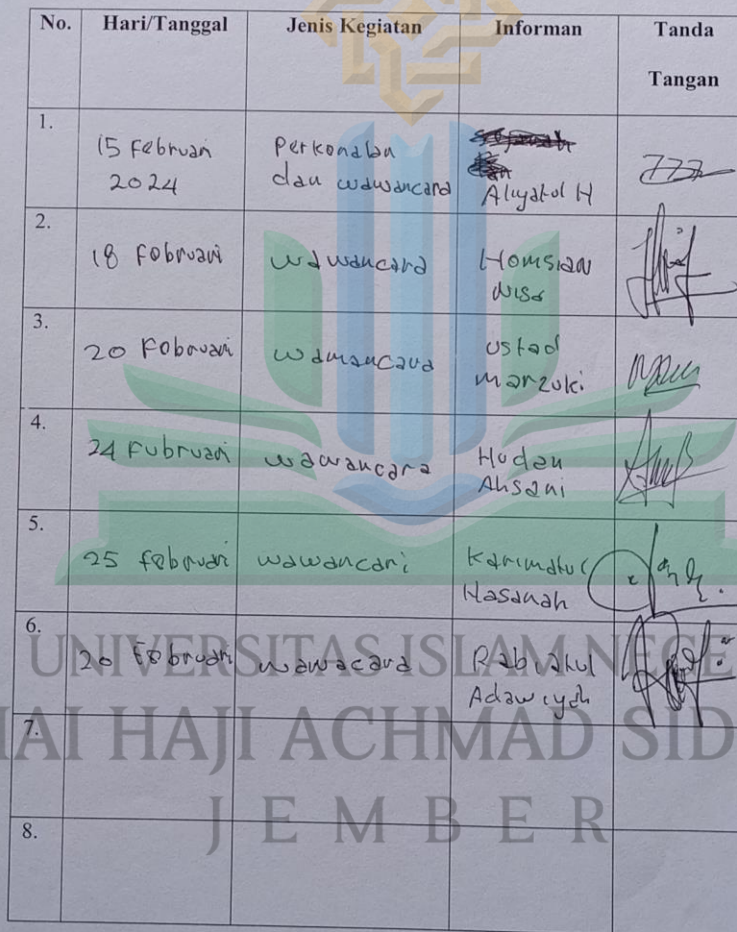 No. Hari/Tanggal Jenis Kegiatan Informan Tanda
Tangan
1.
15 Februari Perkenalan
2024 dan wawancara Aliyatul H
2.
18 Februari wawancara Homsian
Nisa
3.
20 Februari wawancara Ustad
Marzuki
4.
24 Februari wawancara Hudan
Ahsani
5.
25 februari wawancari Karimatul
Hasanah
6.
20 Februari wawacara Rabiatul
Adawiyah
UNIVERSITAS ISLAM NEGE
7.
IAI HAJI ACHMAD SID
JEMBER
8.